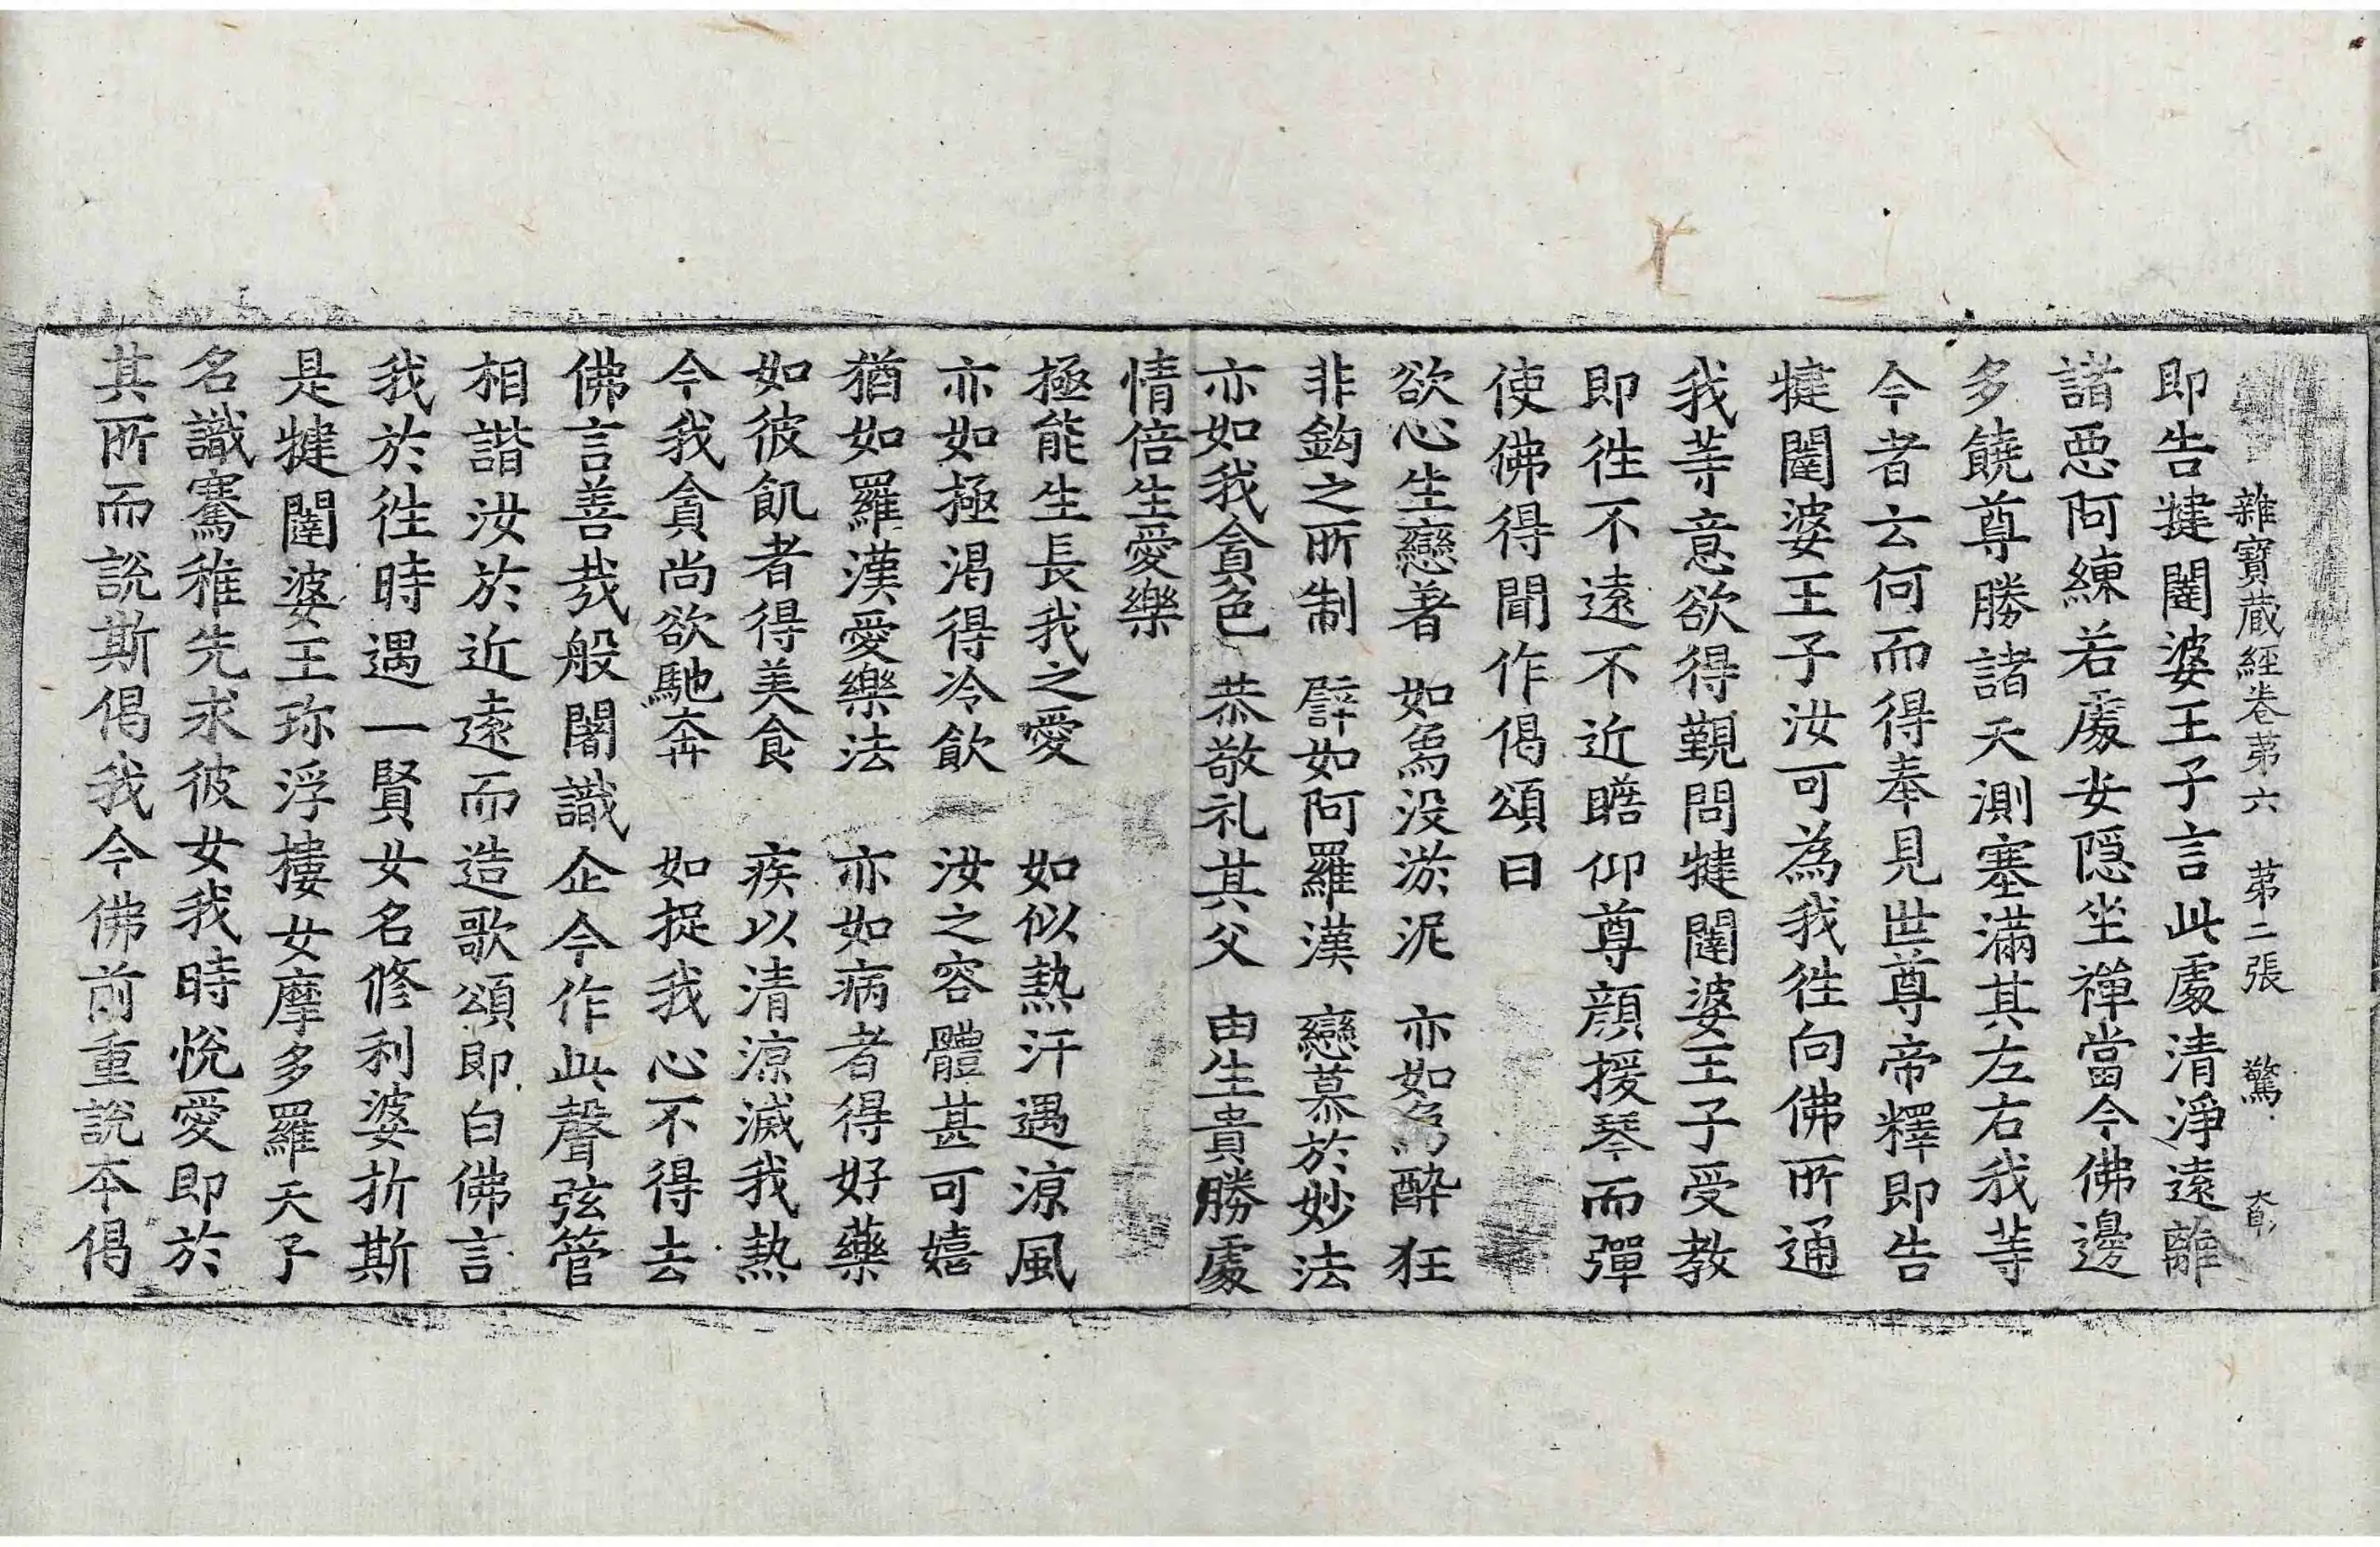 雜寶蔵經卷苐六 苐二張 驚
即告揵闥婆王子言此處清淨遠離
諸惡阿練若處安隱坐禪當今佛邊
多饒尊勝諸天測塞滿其左右我䓁
今者云何而得奉見世尊帝釋即告
揵闥婆王子汝可為我徃向佛所通
我䓁意欲得覲問揵闥婆王子受教
即徃不遠不近瞻仰尊顏援琴而彈
使佛得聞作偈頌曰
欲心生戀著 如象没淤泥 亦如象醉狂
非鈎之所制 譬如阿羅漢 戀慕於妙法
亦如我貪色 恭敬礼其父 由生貴勝處
情倍生愛樂
極能生長我之愛 如似熱汗遇涼風
亦如極渴得冷飲 汝之容體甚可嬉
猶如羅漢愛樂法 亦如病者得好藥
如彼飢者得美食 疾以清涼滅我熱
今我貪尚欲馳奔 如捉我心不得去
佛言善㢤般闍識企今作此聲弦管
相諧汝於近遠而造歌頌即白佛言
我於徃時遇一賢女名修利婆折斯
是揵闥婆王珎浮樓女摩多羅天子
名識騫稚先求彼女我時恱愛即於
其所而說斯偈我今佛前重說本偈